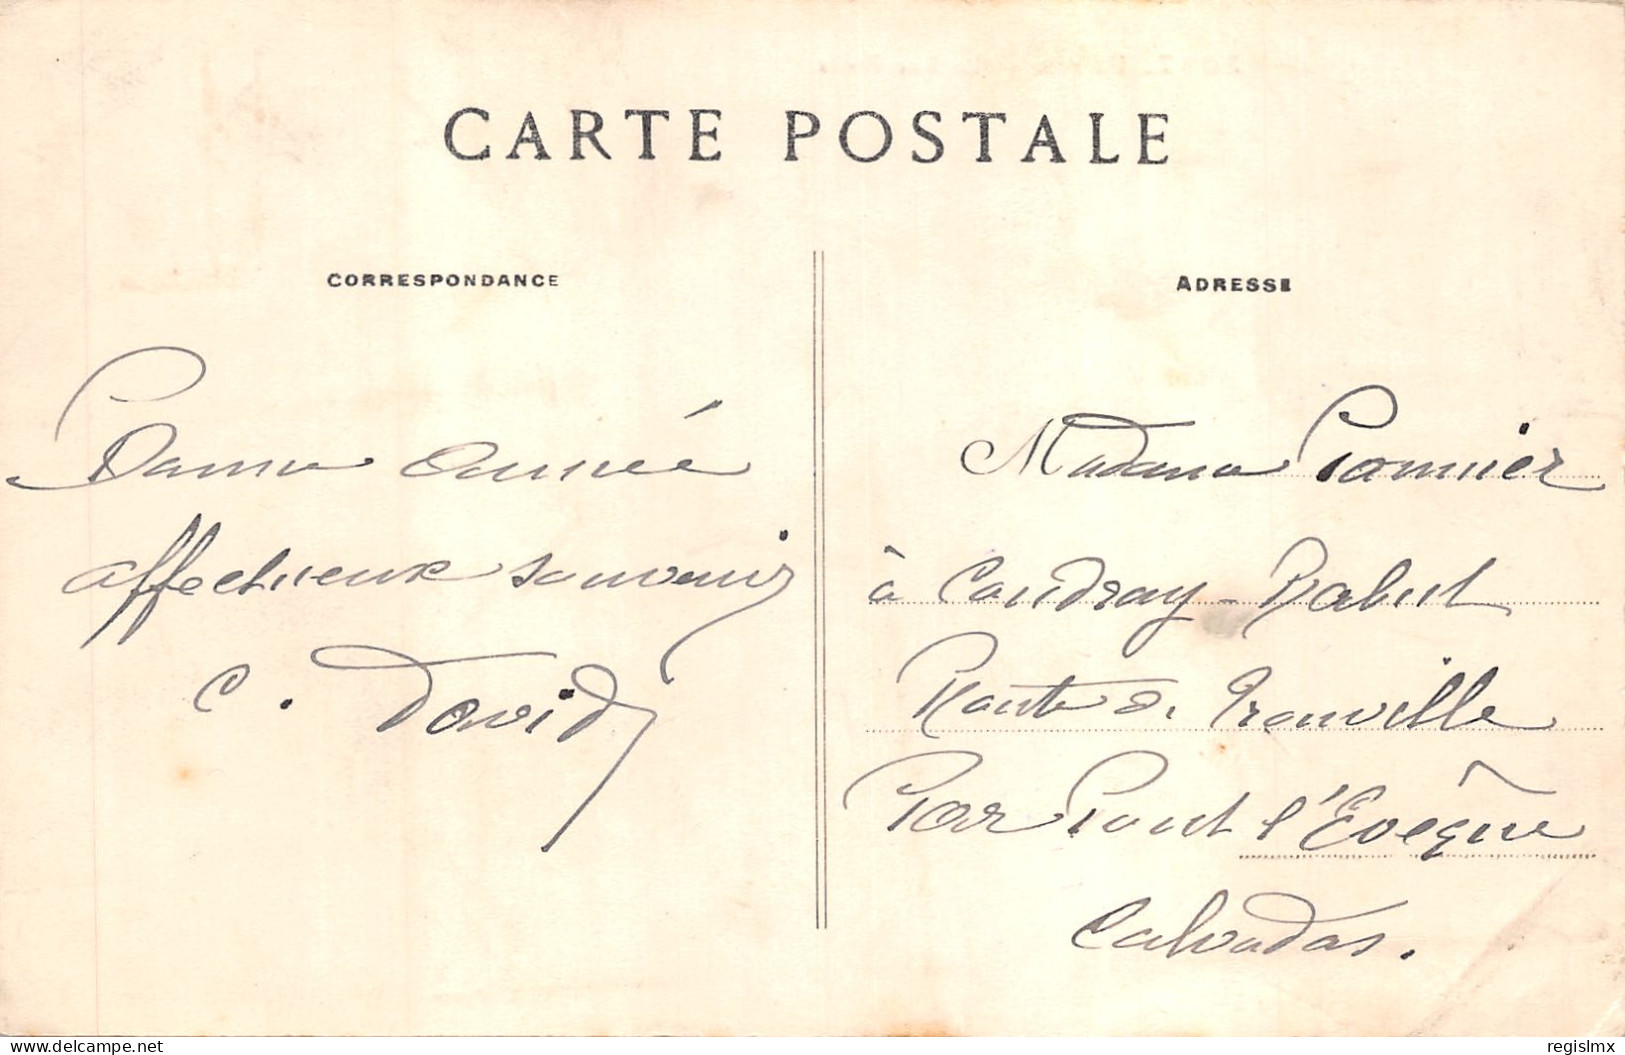 CARTE POSTALE
CORRESPONDANCE
Bonne Année
affectueux souvenir
C. David
ADRESSE
Madame Pannier
à Coudray-Rabut
Route de Trouville
Par Pont l'Evêque
Calvados.
www.delcampe.net
regislmx